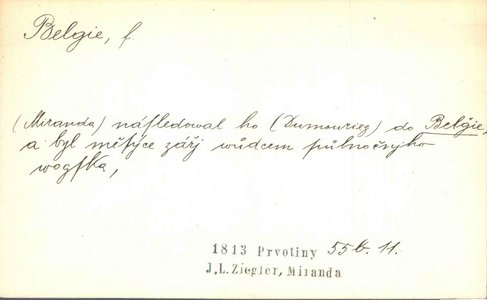 Belgie, f.
(Miranda) náſledowal ho (Dumouriez) do Belgie,
a byl měſýce zářj wůdcem půlnočnjho
wogſka,
1813 Prvotiny 55b. 11.
J.L.Ziegler, Miranda